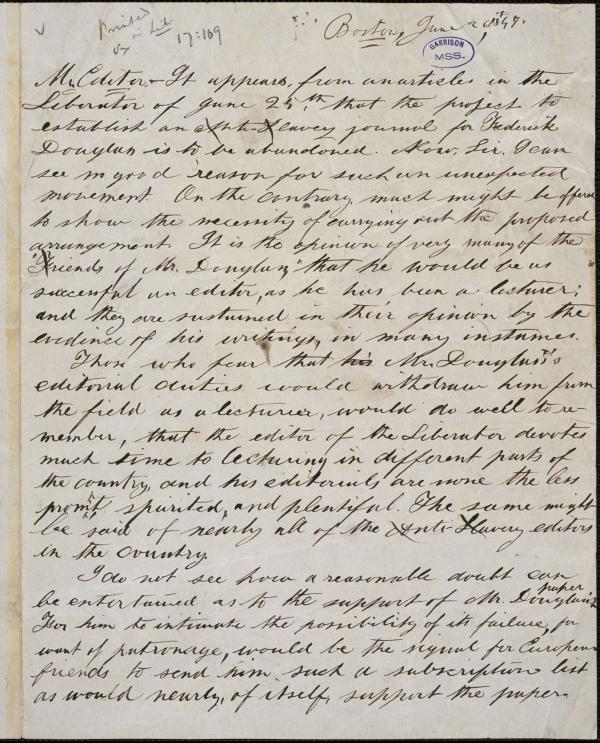 Printed in Lib.
17:109
Boston, June 1847.
GARRISON
MSS.
Mr. Editor,- It appears, from an articles in the
Liberator of June 25th, that the project to
establish an Anti-Slavery journal for Frederik
Douglass is to be abandoned. Now, Sir, I can
see no good reason for such an unexpected
movement. On the contrary, much might be offered
to show the necessity of carrying out the proposed
arrangement. It is the opinion of very many of the
Friends of Mr. Douglass, that he would be as
successful an editor, as he has been a lecturer;
and they are sustained in their opinion by the
evidence of his writings, in many instances.
Those who fear that his Mr. Douglass's
editorial duties would withdraw him from
the field as a lecturer, would do well to re-
member, that the editor of the Liberator devotes
much time to lecturing in different parts of
the country, and his editorials are none the less
promt, spirited, and plentiful. The same might
be said of nearly all of the Anti Slavery editors
in the country.
I do not see how a reasonable doubt can
be entertained as to the support of Mr. Douglass's paper
For him to intimate the possibility of its failure, for
want of patronage, would be the signal for European
friends to send him such a subscription list
as would nearly, of itself, support the paper.